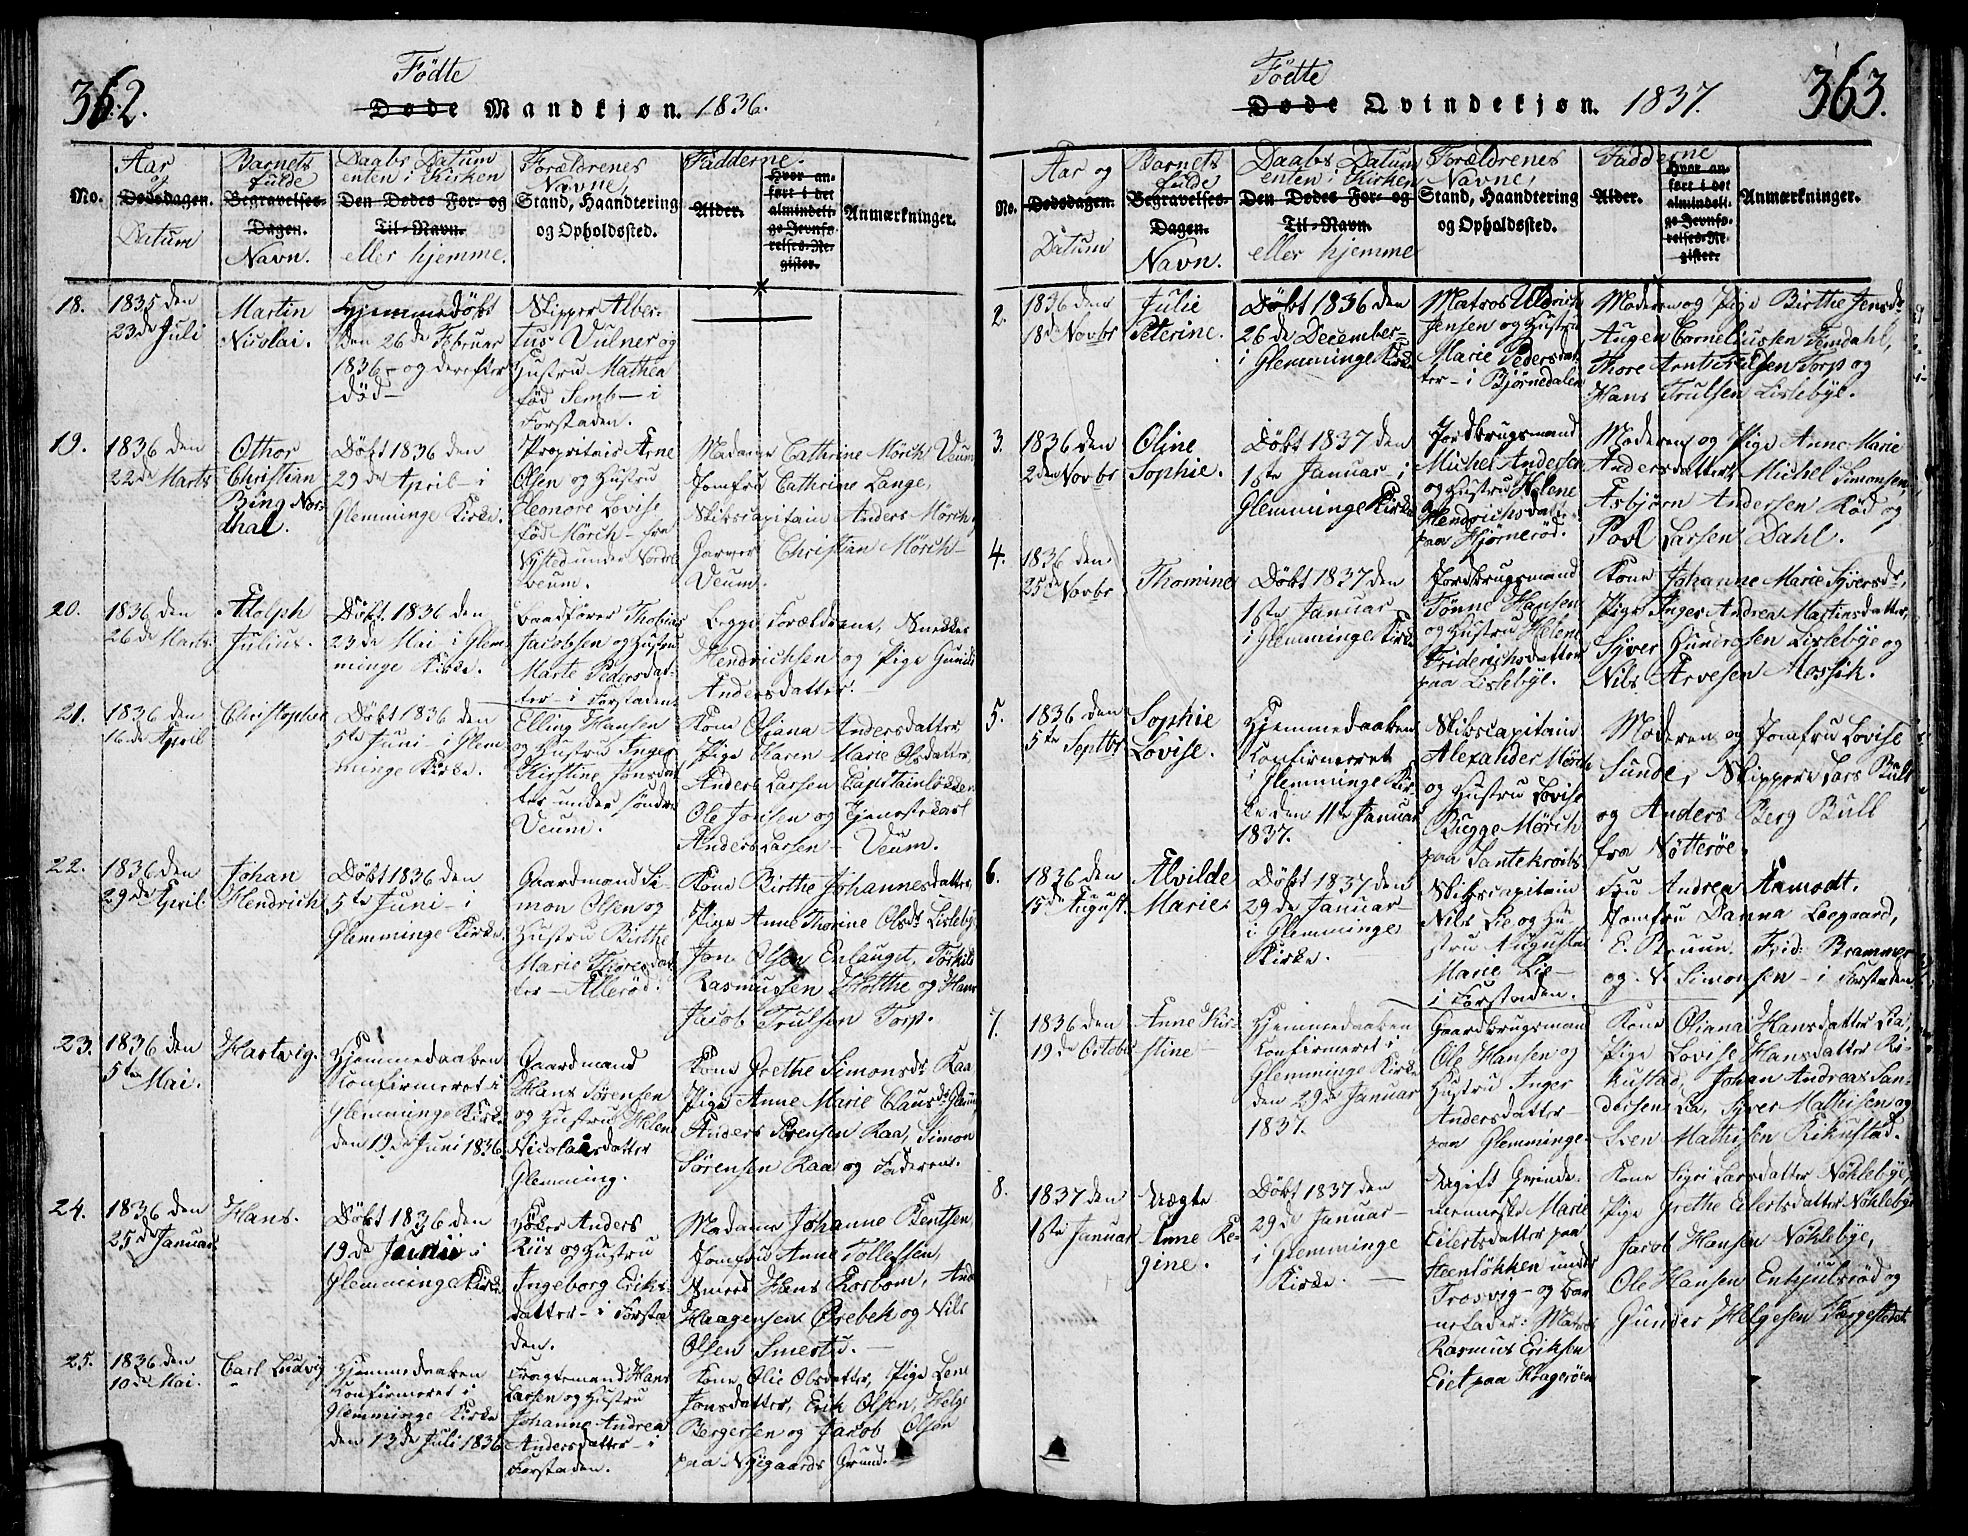 362.
Födte
Døde Mandkjøn. 1836.
No.
Aar og Dødsdagen. Datum
Barnets fulde Begravelses-Dagen. Navn.
Daabs Datum enten i Kirken Den Dødes For- og Til-Navn. eller hjemme.
Forældrenes Navne, Stand, Haandtering og Opholdssted.
Fadderne.
Alder.
Hvor anført i det almindelige Jevnførelses-Register.
Anmærkninger.
18.
1835 den
23de Juli
Martin
Nicolai.
Hjemmedøbt
den 26de Februar
1836 - og derefter
død -
Skipper Alber-
tus Vulner og
Hustru Mathea
fød Semb - i
Forstaden.
19.
1836 den
22de Marts
Othor
Christian
Bing Nor-
dhal.
Døbt 1836 den
29de April - i
Glemminge Kirke.
Propritair Arne
Olsen og Hustru
Eleonore Lovise
fød Mörch - fra
Nysted under Nordre
Veum.
Madame Cathrine Mörch Veum
Jomfru Cathrine Lange,
Skibscapitain Anders Mörch
Farver Christian Mörch -
Veum.
20.
1836 den
26de Marts
Adolph
Julius.
Døbt 1836 den
23de Mai i Glem-
minge Kirke.
Baadfører Thobias
Jacobsen og Hustru
Marte Pedersdat-
ter - i Forstaden
Begge Forældrene, Snedker
Hendrichsen og Pige Gunild
Andersdatter.
21.
1836 den
16de April
Christopher
Døbt 1836 den
5te Juni - i Glem
minge Kirke.
Elling Hansen
og Hustru Inger
Kirstine Jonsdat
ter under söndre
Veum.
Kone Oliana Andersdatter,
Pige Karen Marie Olsdatter,
Anders Larsen Capitainløkken
Ole Jonsen og Tjenestekarl
Anders Larsen - Veum.
22.
1836 den
29de April.
Johan
Hendrich
Døbt 1836 den
5te Juni - i
Glemminge Kirke.
Gaardmand Si-
mon Olsen og
Hustru Birthe
Marie Thoresdat
ter - Allerød.
Kone Birthe Johannesdatter,
Pige Anne Thorine Olsdr Lisleby,
Jon Olsen Enhauget, Torkild
Rasmussen Holthe og Hans
Jacob Trulsen Torp.
23.
1836 den
5te Mai.
Hartvig.
Hjemmedaaben
Konfirmeret i
Glemminge Kirke
den 19de Juni 1836
Gaardmand
Hans Sørensen
og Hustru Helene
Nicolaisdatter
Glemming.
Kone Grethe Simonsdr Raa
Pige Anne Marie Clausdr Glemm
Anders Sørensen Raa, Simon
Sørensen Raa og Faderen.
24.
1836 den
25de Januar
Hans.
Døbt 1836 den
19de Junii i
Glemminge Kirke
Høker Anders
Riis og Hustru
Ingeborg Eriks-
datter - i Forsta
den.
Madame Johanne Bentsen,
Jomfru Anne Tollefsen
Smed Hans Korsbom, And
Haagensen Ørebek og Nils
Olsen Smertu. -
25.
1836 den
10de Mai.
Carl Ludvig
Hjemmedaaben
Konfirmeret i
Glemminge Kirke
den 13de Juli 1836
Fragtemand Hans
Larsen og Hustru
Johanne Andrea
Andersdatter - i
Forstaden.
Kone Olie Olsdatter, Pige Lene
Jonsdatter, Erik Olsen, Helge
Bergersen og Jacob Olsen
paa Nygaards Grund.
363.
Födte
Døde Qvindekjøn. 1837.
No.
Aar og Dødsdagen. Datum
Barnets fulde Begravelses-Dagen. Navn.
Daabs Datum enten i Kirken Den Dødes For- og Til-Navn. eller hjemme
Forældrenes Navne, Stand, Haandtering og Opholdssted.
Fadderne
Alder.
Hvor anført i det almindelige Jevnførelses-Register.
Anmærkninger.
2.
1836 den
18de Novbr
Julie
Peterine.
Døbt 1836 den
26de December
i Glemminge Kirke
Matros Uldrich
Jensen og Hustru
Marie Pedersdat-
ter - i Bjørnedalen
Moderen og Pige Birthe Jensdr
Augen Corneliussen Femdahl,
Thore Arntsen Torp og
Hans Trulsen Lislebye.
3.
1836 den
2den Novbr
Oline
Sophie.
Døbt 1837 den
1ste Januar i
Glemminge Kirke
Jordbrugsmand
Michel Andersen
og Hustru Helene
Hendrichsdatter
paa Hjørnerød.
Moderen og Pige Anne Marie
Andersdatter, Michel Simonsen,
Asbjørn Andersen Rød og
Povl Larsen Dahl.
4.
1836 den
25de Novbr
Thomine
Døbt 1837 den
1ste Januar
i Glemminge Kirke
Jordbrugsmand
Tønne Hansen
og Hustru Helene
Friderichsdatter
paa Lislebye.
Kone Johanne Marie Syversdr,
Pige Inger Andrea Martinsdatter,
Syver Gundersen Lislebye og
Nils Arvesen Mossik.
5.
1836 den
5te Septbr
Sophie
Lovise.
Hjemmedaaben
Konfirmeret
i Glemminge Kir-
ke den 11te Januar
1837.
Skibscapitain
Alexander Mörch
og Hustru Lovise
Bugge Mörch
paa Santekroibs
Moderen og Jomfru Lovise
Sunde, Skipper Lars Bull
og Anders Berg Bull
fra Nötterøe.
6.
1836 den
15de August.
Alvilde
Marie
Døbt 1837 den
29de Januar
i Glemminge
Kirke.
Skibscapitain
Nils Lie og Hu-
stru Augusta
Marie Lie -
i Forstaden.
Fru Andrea Aamodt.
Jomfru Danna Leegaard,
E. Bruun. Frid: Brammer
og N Simonsen - i Forstaden
7.
1836 den
19de October
Anne Kir-
stine -
Hjemmedaaben
Konfirmeret i
Glemminge Kirke
den 29de Januar
1837.
Gaardbrugsmand
Ole Hansen og
Hustru Inger
Andersdatter -
paa Glemminge.
Kone Oliana Hansdatter Lia,
Pige Lovise Hansdatter Ri-
kustad, Johan Andreas San-
dersen Lia, Syver Mathisen og
Sven Mathisen Rikustad.
8.
1837 den
1ste Januar
Uægte
Anne Re-
gine.
Døbt 1837 den
29de Januar -
i Glemminge
Kirke. -
Ugift Qvinde
menneske Marie
Eilertsdatter paa
Steenløkken under
Trosvig - og bar
nefader: Matros
Rasmus Eriksen
Eiet paa Kragerøen
Kone Sigri Larsdatter Nøklebye,
Pige Grethe Eilertsdatter Nøklebye
Jacob Hansen Nøklebye,
Ole Hansen Enhjulsrød og
Gunder Helgesen Færgestedet